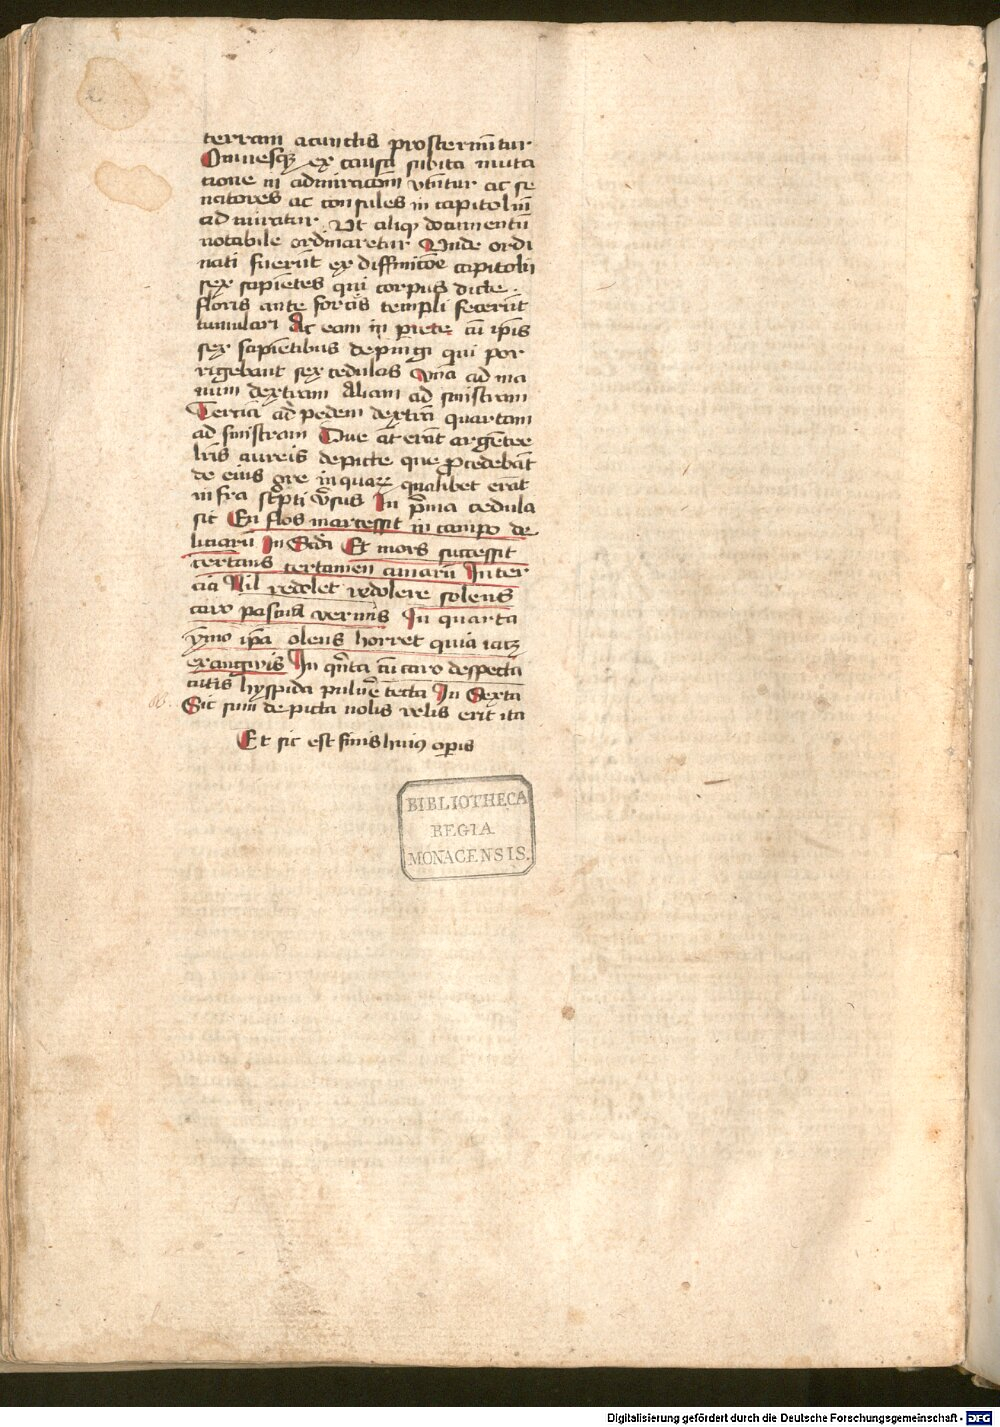 terram a cunctis prosternitur
Omnesq3 ex causa subita muta
cione in admiracōm vtūtur ac se
natores ac consules in capitoliū
ad miratur Ut aliqɜ documentū
notabile ordinaretur Unde ordi
nati fuerūt ex diffinicōe capitolii
sex sapiētes qui corpus dicte
floris ante fores templi fecerūt
tumulari Ac eam in p̄iete cū ip̄is
sex sapiētibus depingi qui por
rigebant sex cedulas Vna ad ma
num dextram Aliam ad sinistram
Tercia ad pedem dextrā quartam
ad sinistram Que āt erāt argētee
lr̄is aureis depicte que ꝓcedebāt
de eius ore in quaꝝ qualibet erāt
infra sc̄pti v̄sus In p̄ma cedula
sic En flos marcessit in campo de
liciarū In Scd̄a Et mors successit
certans certamen amarū In ter
cia Nil redolet redolere solens
caro pascua vermis In quarta
ymo ip̄a olens horret quia iacꝫ
exangwis In qn̄ta cū caro despecta
cutis hyspida puluē tecta In Sexta
Sic sum depicta nolis velis erit ita
Et sic est finis huiꝰ op̄is
BIBLIOTHECA
REGIA
MONACENSIS.
Digitalisierung gefördert durch die Deutsche Forschungsgemeinschaft - DFG